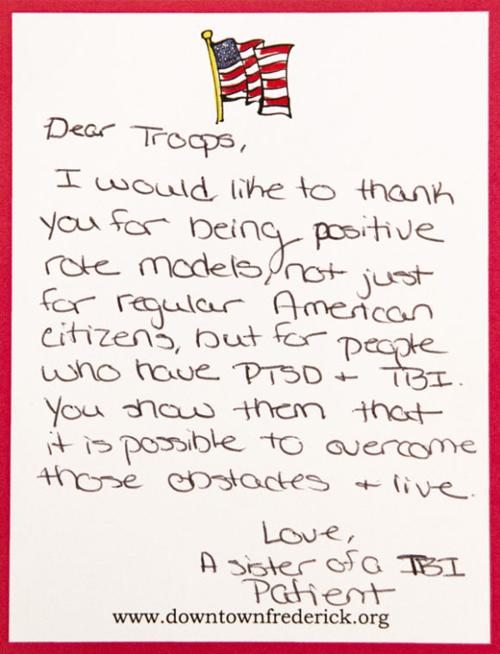 Dear Troops,
I would like to thank
you for being positive
role models, not just
for regular American
citizens, but for people
who have PTSD + TBI.
You show them that
it is possible to overcome
those obstacles + live.
Love,
A sister of a TBI
Patient
www.downtownfrederick.org